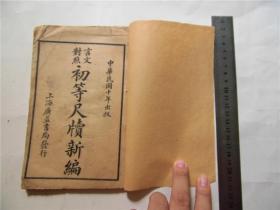 中華民國十年出版
言文對照
初等尺牘新編
上海廣益書局發行